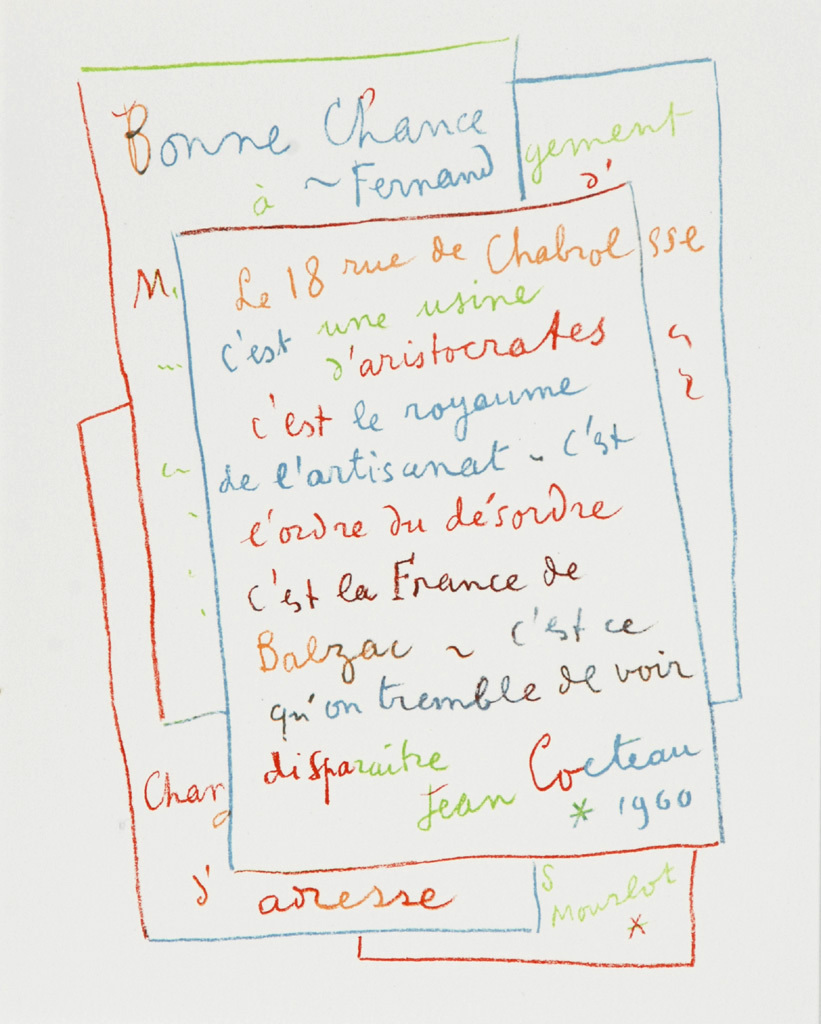 Bonne Chance
à ~ Fernand
gement
d'
M.
Le 18 rue de Chabrol
sse
c'est une usine
d'aristocrates
c'est le royaume
de l'artisanat ~ c'est
l'ordre du désordre
c'est la France de
Balzac ~ c'est ce
qu'on tremble de voir
disparaître
Jean Cocteau
* 1960
Chang
d'
adresse
S
Mourlot
*